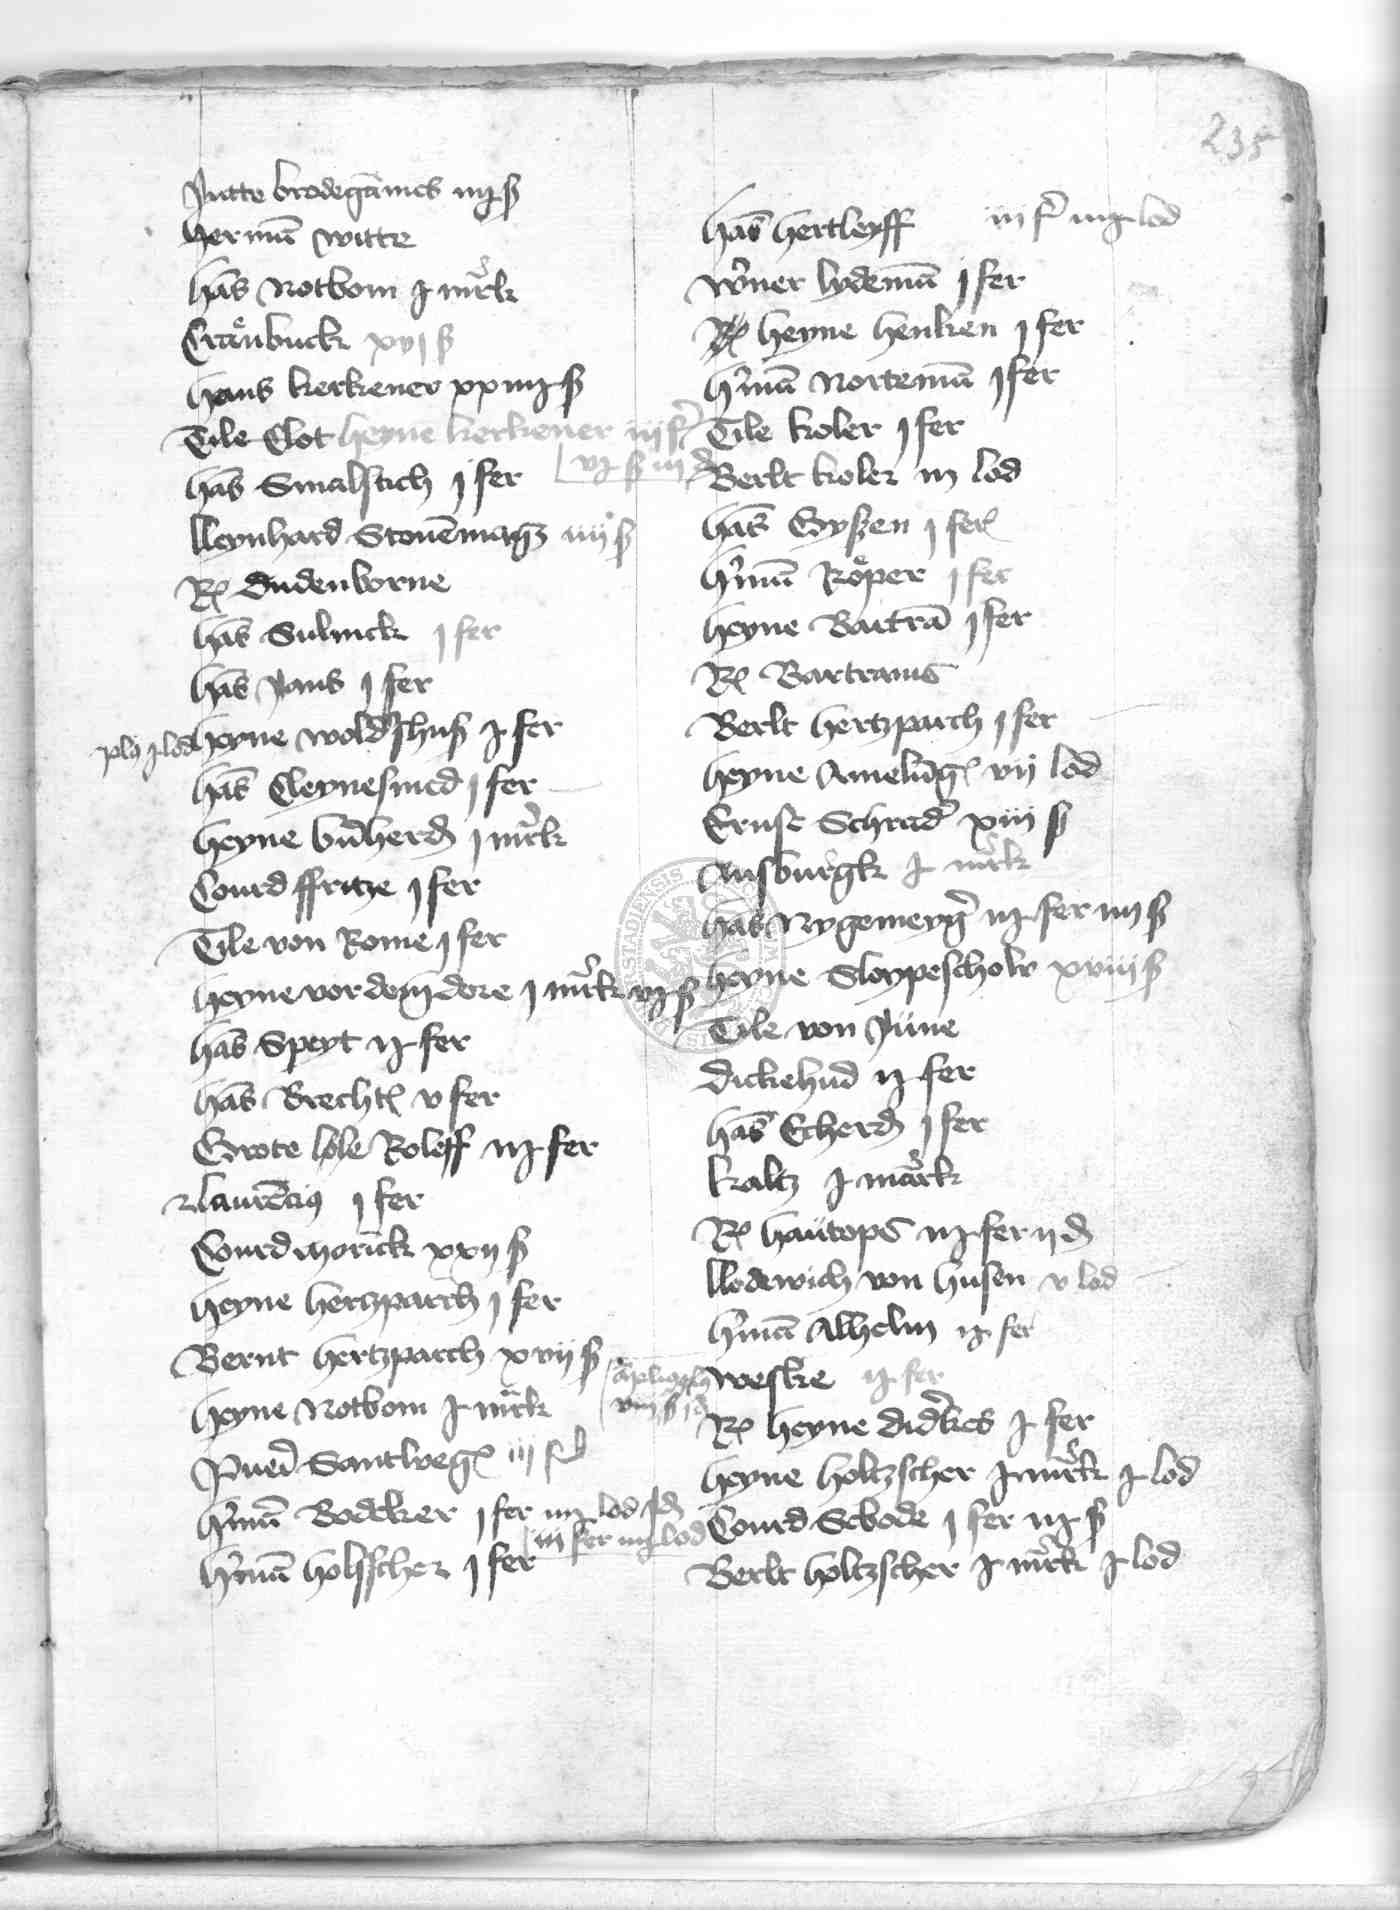 235
Jutte brodegāmes iij ß
hermā witte
hās Notbom j mrk
Craͤnbuck xvj ß
hans kerkener xxiij ß
Tile Clot heyne kerkener iiij f
vj ß iij d
hās Smalstich j fer
lleynhard Stouēmagz iiij ß
Rͤ dudenborne
hās Sulinck j fer
hās Jans j fer
plus j lod heyne woldeshuß j fer
hās Cleynesmed j fer
heyne būherd j mrk
Courd ffritze j fer
Tile von Rome j fer
heyne vor dem dore j mrk vj ß
hās Speyt ij fer
hās Brecht v fer
Grote lole Roleff iij fer
laurēcius j fer
Courd morick xxij ß
heyne hertzparch j fer
Bernt hertzparch xvij ß
heyne Notbom j mrk
Santweg iij f
h'mā Bodeker j fer iij lod j d
iij fer iij lod
h'mā holsscher j fer
hās hertleyff iij f iij lod
w'ner lydemā j fer
R heyne henken j fer
h'mā Nortemā j fer
Tile koler j fer
Berlt koler iij lod
hās Gyßen j fer
h'mā Roͤper j fer
heyne Bartrā j fer
R Bartrams
Berlt hertzparch j fer
heyne Amelūg vij lod
Ernst Schrad' xiij ß
Ausburgk j mrk
hās Nygemeyg' iij fer iiij ß
heyne Sloypeschole xviij ß
Tile von Jüne
dickehud ij fer
hās Echerd j fer
kaltz j mark
R hautops iij fer ij d
llodewich von husen v lod
h'mā Alhelm ij fer
weske ij fer
viij ß j d
R heyne did'kes j fer
heyne holtzscher j mrk j lod
Courd Scbode j fer iij ß
Berlt holtzscher j mrk j lod